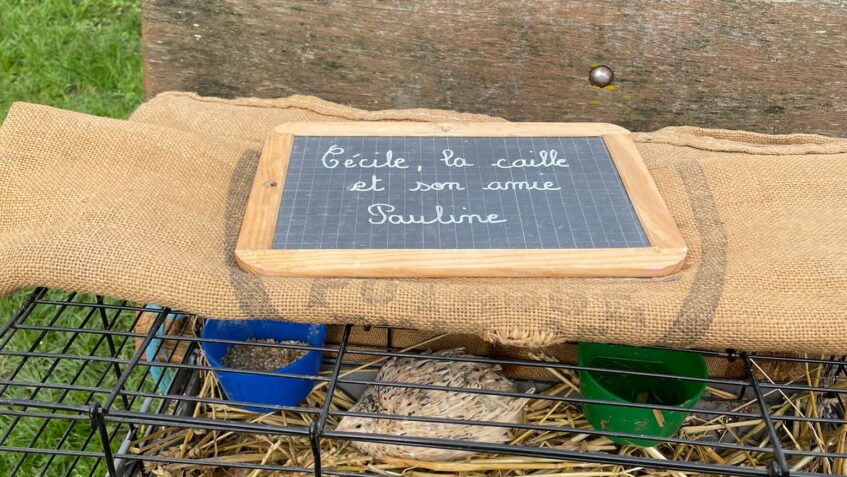 Cécile, la caille
et son amie
Pauline